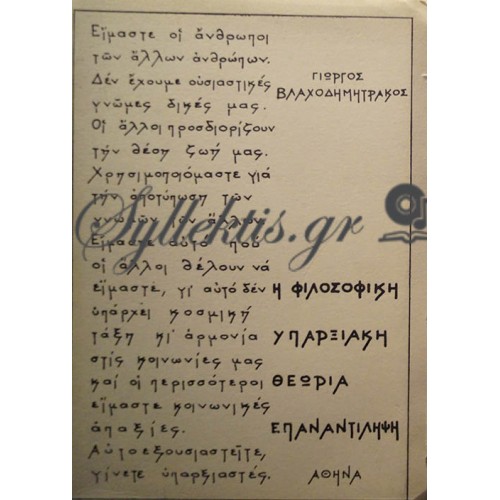 Εἴμαστε οἱ ἄνθρωποι
τῶν ἄλλων ἀνθρώπων.
Δέν ἔχουμε οὐσιαστικές
γνῶμες δικές μας.
Οἱ ἄλλοι προσδιορίζουν
τήν θέση ζωή μας.
Χρησιμοποιόμαστε γιά
τήν ἀποτύπωση τῶν
γνωμῶν τῶν ἄλλων.
Εἴμαστε αὐτό πού
οἱ ἄλλοι θέλουν νά
εἴμαστε, γι' αὐτό δέν
ὑπάρχει κοσμική
τάξη κι' ἁρμονία
στίς κοινωνίες μας
καί οἱ περισσότεροι
εἴμαστε κοινωνικές
ἀπαξίες.
Αὐτοεξουσιαστεῖτε,
γίνετε ὑπαρξιαστές.
ΓΙΩΡΓΟΣ
ΒΛΑΧΟΔΗΜΗΤΡΑΚΟΣ
Η ΦΙΛΟΣΟΦΙΚΗ
ΥΠΑΡΞΙΑΚΗ
ΘΕΩΡΙΑ
ΕΠΑΝΑΝΤΙΛΗΨΗ
ΑΘΗΝΑ
Syllektis.gr